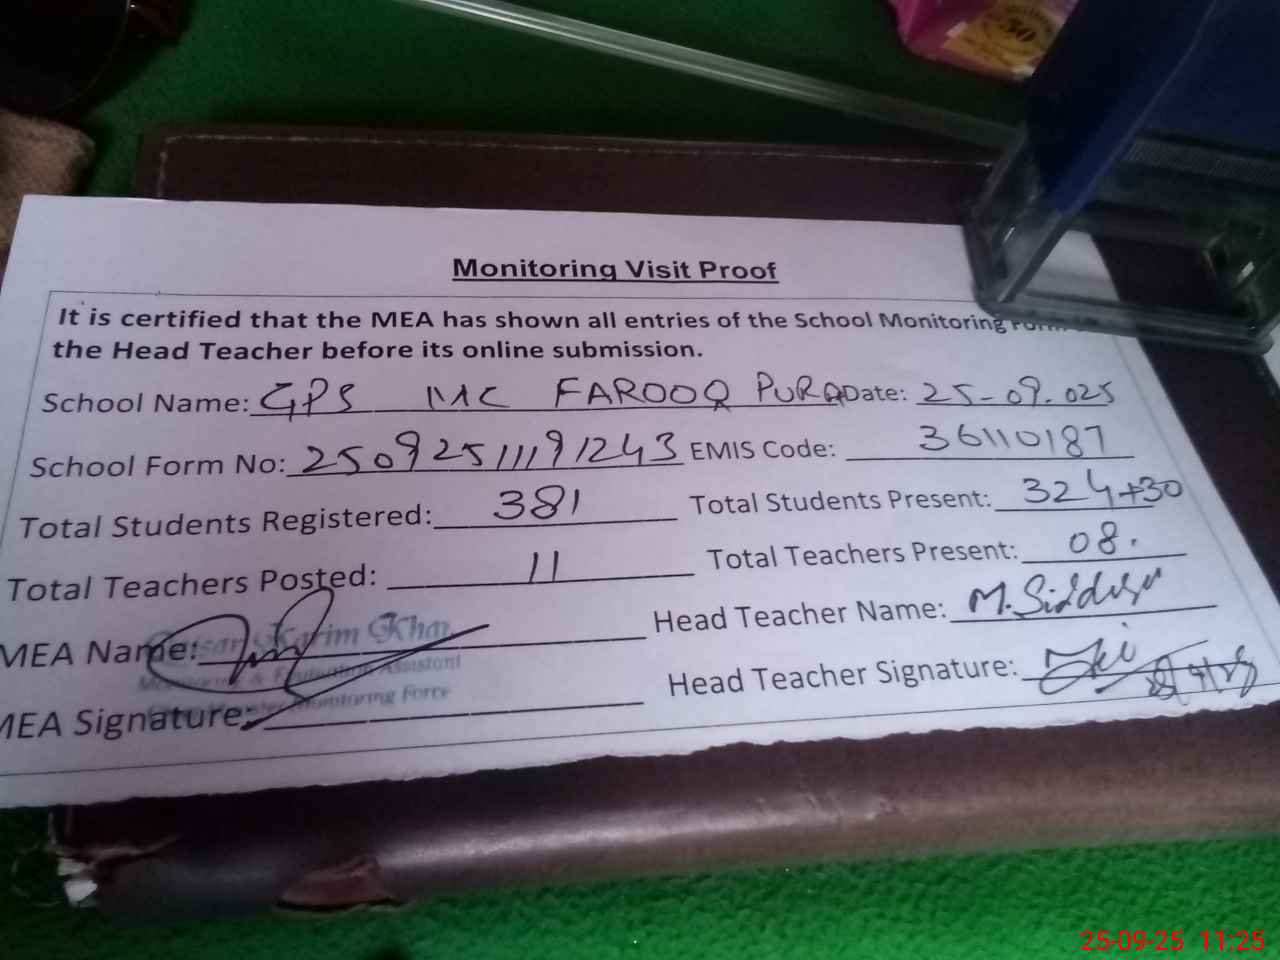 Monitoring Visit Proof
It is certified that the MEA has shown all entries of the School Monitoring Form
the Head Teacher before its online submission.
School Name: GPS MC FAROOQ PURA Date: 25-09.025
School Form No: 25092511191243 EMIS Code: 36110187
Total Students Registered: 381 Total Students Present: 324+30
Total Teachers Posted: 11 Total Teachers Present: 08.
MEA Name: Karim Khan Head Teacher Name: M. Siddique
Monitoring & Evaluation Assistant
MEA Signature: Monitoring Force Head Teacher Signature:
25-09-25 11:25